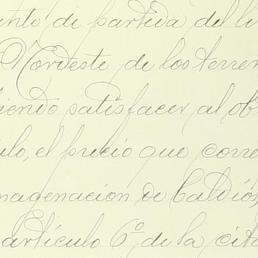 punto de partida del li
Nordeste de los terren
iendo satisfacer al ob
ulo, el precio que corre
nagenacion de Baldío
artículo 6º de la cita